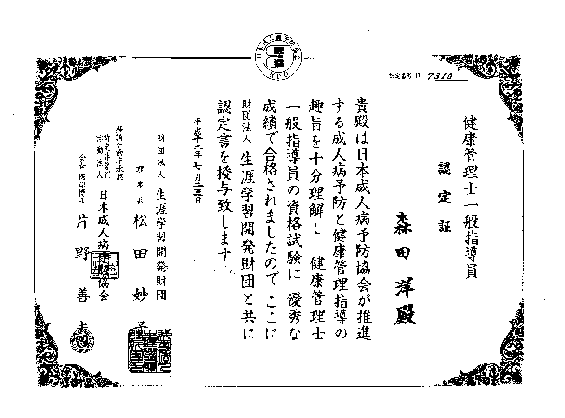 認定番号 H 7310
健康管理士一般指導員
認定証
森田洋殿
貴殿は日本成人病予防協会が推進
する成人病予防と健康管理指導の
趣旨を十分理解し 健康管理士
一般指導員の資格試験に 優秀な
成績で合格されましたので ここに
財団法人 生涯学習開発財団と共に
認定書を授与致します
財団法人 生涯学習開発財団
理事長 松田妙子
日本成人病予防協会
片野善